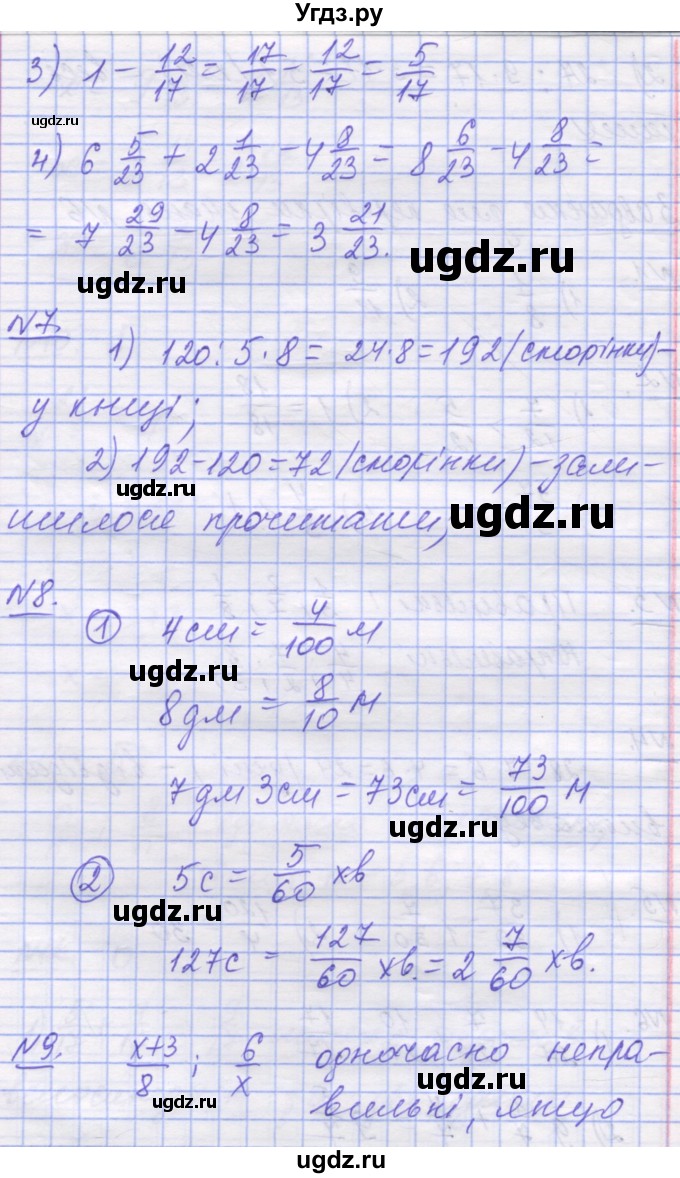 Угдз.ру
3) 1 - 12/17 = 17/17 - 12/17 = 5/17
ugdz.ru
4) 6 5/23 + 2 1/23 - 4 8/23 = 8 6/23 - 4 8/23 =
ugdz.ru
= 7 29/23 - 4 8/23 = 3 21/23.
ugdz.ru
ugdz.ru
№7.
1) 120 : 5 · 8 = 24 · 8 = 192 (сторінки) -
у книзі;
2) 192 - 120 = 72 (сторінки) - зали-
ugdz.ru
шилося прочитати;
ugdz.ru
№8.
1 4 см = 4/100 м
ugdz.ru
8 дм = 8/10 м
7 дм 3 см = 73 см = 73/100 м
ugdz.ru
2 5 с = 5/60 хв
ugdz.ru
127 с = 127/60 хв. = 2 7/60 хв.
ugdz.ru
№9. x+3/8 ; 6/x одночасно непра-
ugdz.ru
вильні, якщо
ugdz.ru